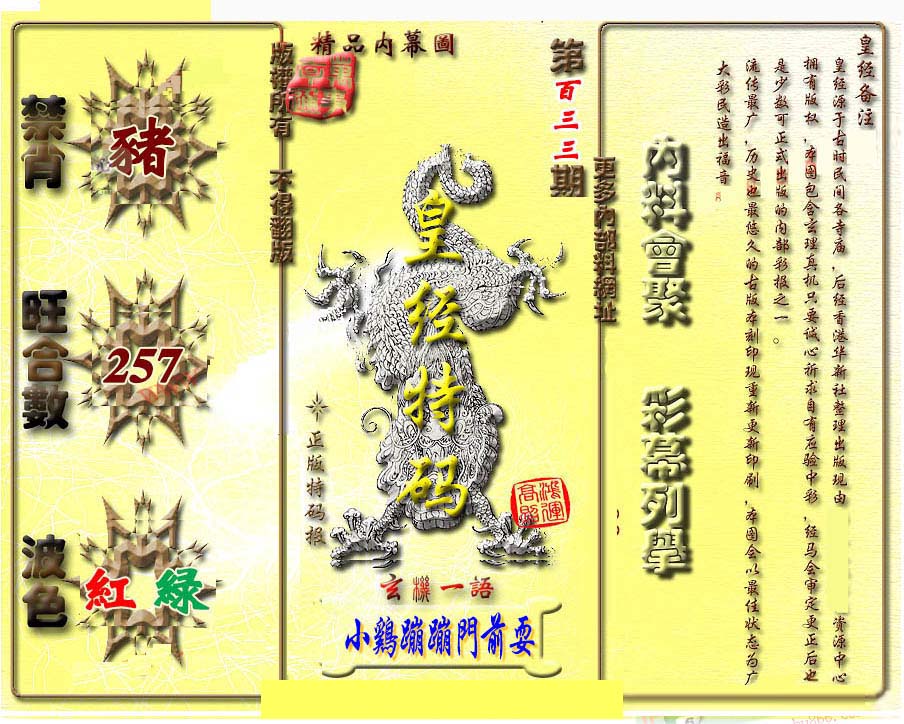 精品内幕圖
版權所有 不得翻版
第百三三期
更多內部料網址
禁肖
豬
旺合數
257
波色
紅 綠
皇经特码
正版特码报
鴻運
玄機一語
小鷄蹦蹦門前耍
内料會聚
彩幕列擧
皇经备注
皇经源于古时民间各寺庙，后经香港华新社整理出版现由 资源中心
拥有版权，本图包含玄理真机只要诚心祈求自有应验中彩，经马会审定更正后也
是少数可正式出版的内部彩报之一。
流传最广，历史也最悠久的古版本刻印现重新更新印刷，本图会以最佳状态为广
大彩民造出福音